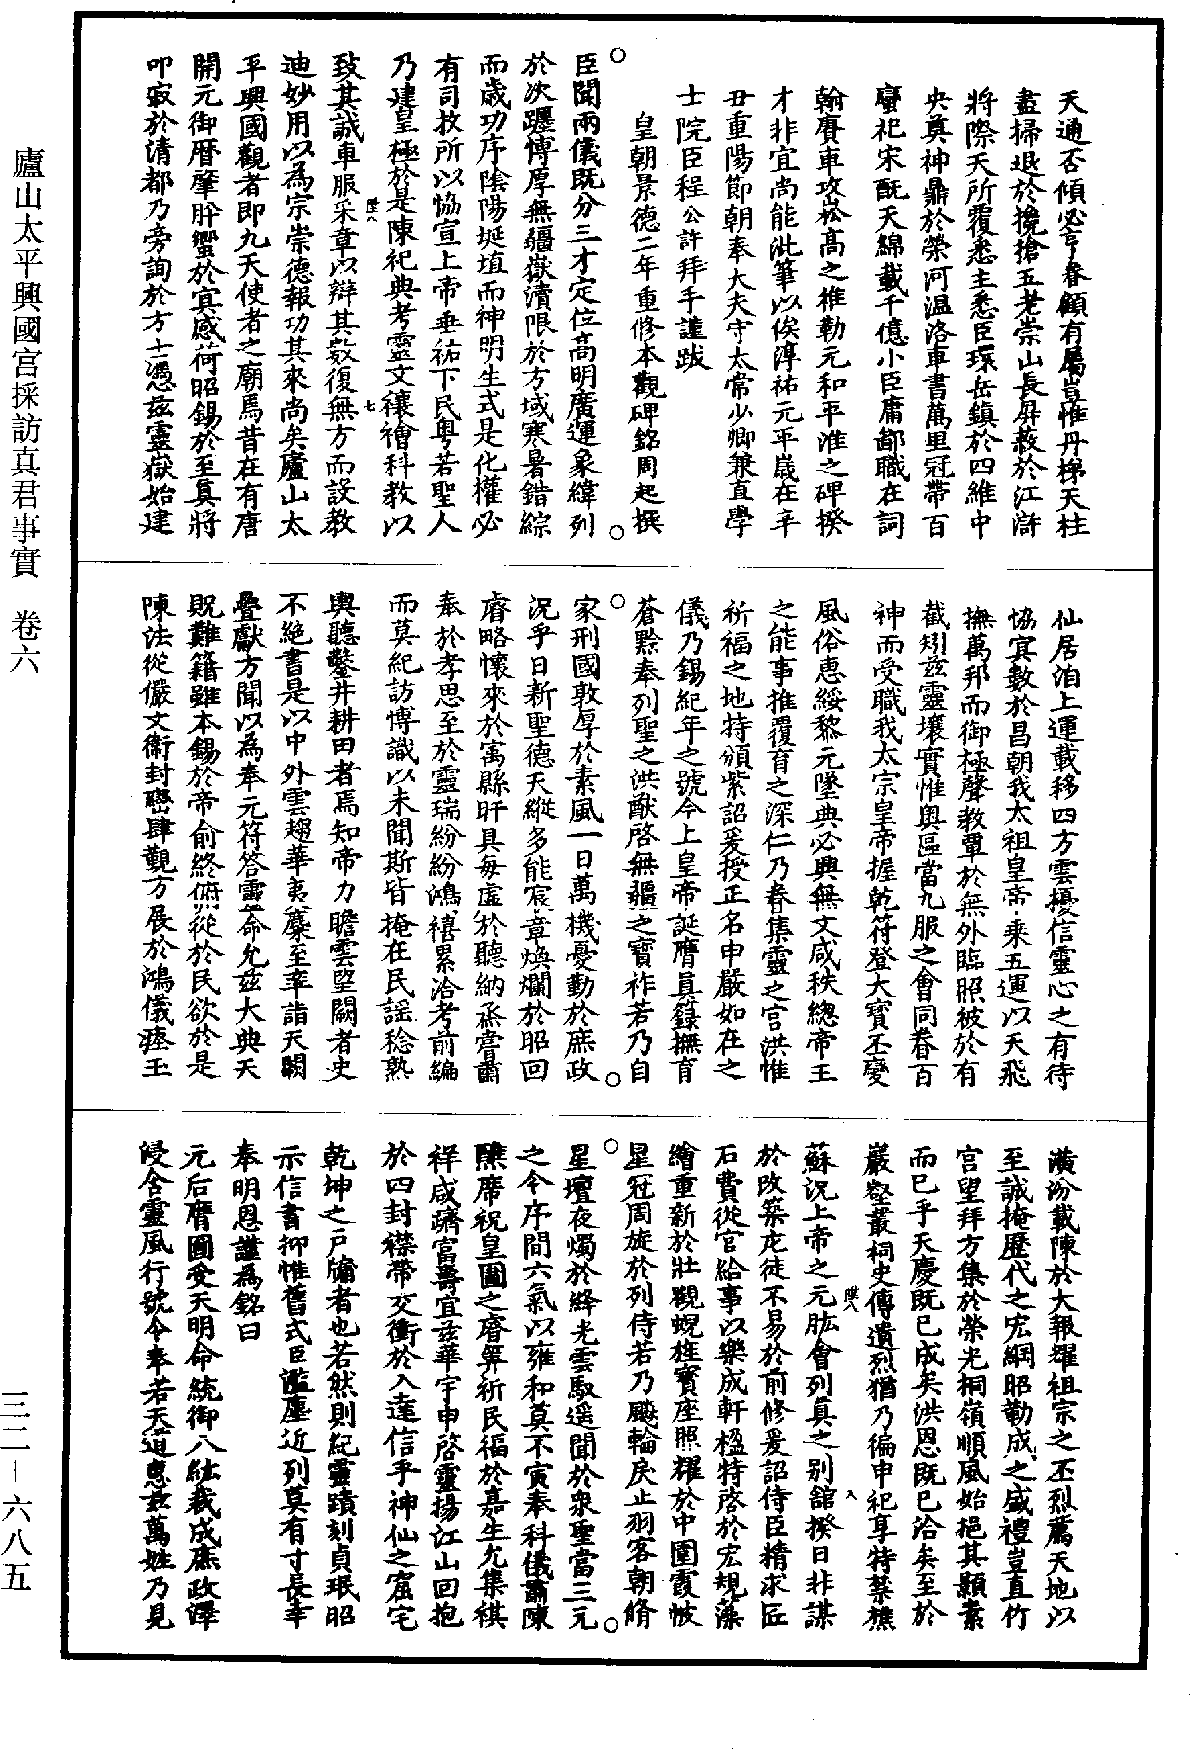 天通否傾必亨眷顧有屬豈惟丹梯天柱
盡掃退於攙搶五老崇山長屏蔽於江滸
將際天所覆悉主悉臣琛岳鎮於四維中
央奠神鼎於榮河溫洛車書萬里冠帶百
蠻祀宋酖天綿載千億小臣庸鄙職在詞
翰賡車攻崧高之推勒元和平淮之碑揆
才非宜尚能泚筆以俟淳祐元平歲在辛
丑重陽節朝奉大夫守太常少卿兼直學
士院臣程公許拜手謹跋
皇朝景德二年重修本觀碑銘周起撰
臣聞兩儀既分三才定位高明廣運象緯列
於次躔博厚無疆嶽瀆限於方域寒暑錯綜
而歲功序陰陽埏埴而神明生式是化權必
有司牧所以協宣上帝垂祐下民粵若聖人
乃建皇極於是陳祀典考靈文禳禬科教以
致其誠車服采章以辯其數復無方而設教
迪妙用以為宗崇德報功其來尚矣廬山太
平興國觀者即九天使者之廟焉昔在有唐
開元御曆肇肸蠁於冥感荷昭錫於至真將
叩寂於清都乃旁詢於方士憑茲靈嶽始建
仙居洎上運載移四方雲擾信靈心之有待
協冥數於昌朝我太祖皇帝乘五運以天飛
撫萬邦而御極聲教覃於無外臨照被於有
截矧茲靈壤實惟奧區當九服之會同眷百
神而受職我太宗皇帝握乾符登大寶丕變
風俗惠綏黎元墜典必興無文咸秩總帝王
之能事推覆育之深仁乃眷集靈之宮洪惟
祈福之地持頒紫詔爰授正名申嚴如在之
儀乃錫紀年之號今上皇帝誕膺真籙撫育
蒼黔奉列聖之洪猷啓無疆之寶祚若乃自
家刑國敦厚於素風一日萬機憂勤於庶政
況乎日新聖德天縱多能宸章煥爛於昭回
睿略懷來於寓縣旰具每虛於聽納烝嘗肅
奉於孝思至於靈瑞紛紛鴻禧累洽考前編
而莫紀訪博識以未聞斯皆掩在民謠稔熟
輿聽鑿井耕田者焉知帝力瞻雲望闕者史
不絕書是以中外雲趨華夷麇至率詣天闕
疊獻方聞以為奉元符答靈命允茲大典天
貺難籍雖本錫於帝俞終俯從於民欲於是
陳法從儼文衛封巒肆覲方展於鴻儀瘞玉
潢汾載陳於大報耀祖宗之丕烈薦天地以
至誠掩歷代之宏綱昭勒成之盛禮豈直竹
宮望拜方集於榮光桐嶺順風始挹其顥素
而已乎天慶既已成矣洪恩既已洽矣至於
巖壑叢祠史傳遺烈猶乃徧申祀享特禁樵
蘇況上帝之元肱會列真之別舘揆日非謀
於改築庀徒不易於前修爰詔侍臣精求匠
石費從官給事以樂成軒楹特啓於宏規藻
繪重新於壯觀蜺旌寶座照耀於中圍霞帔
星冠周旋於列侍若乃飈輪戾止羽客朝脩
星壇夜燭於絳光雲馭遥聞於衆聖當三元
之令序間六氣以雍和莫不寅奉科儀肅陳
醮席祝皇圖之曆筭祈民福於嘉生尤集祺
祥咸躋富壽宜茲華宇申啓靈揚江山回抱
於四封襟帶交衝於八達信乎神仙之窟宅
乾坤之戶牖者也若然則紀靈蹟刻貞珉昭
示信書抑惟舊式臣濫塵近列莫有寸長幸
奉明恩謹為銘曰
元后膺圖受天明命統御八紘裁成庶政澤
浸含靈風行號令奉若天道惠茲萬姓乃見
廬山太平興國宮採訪真君事實　卷六
三二－六八五